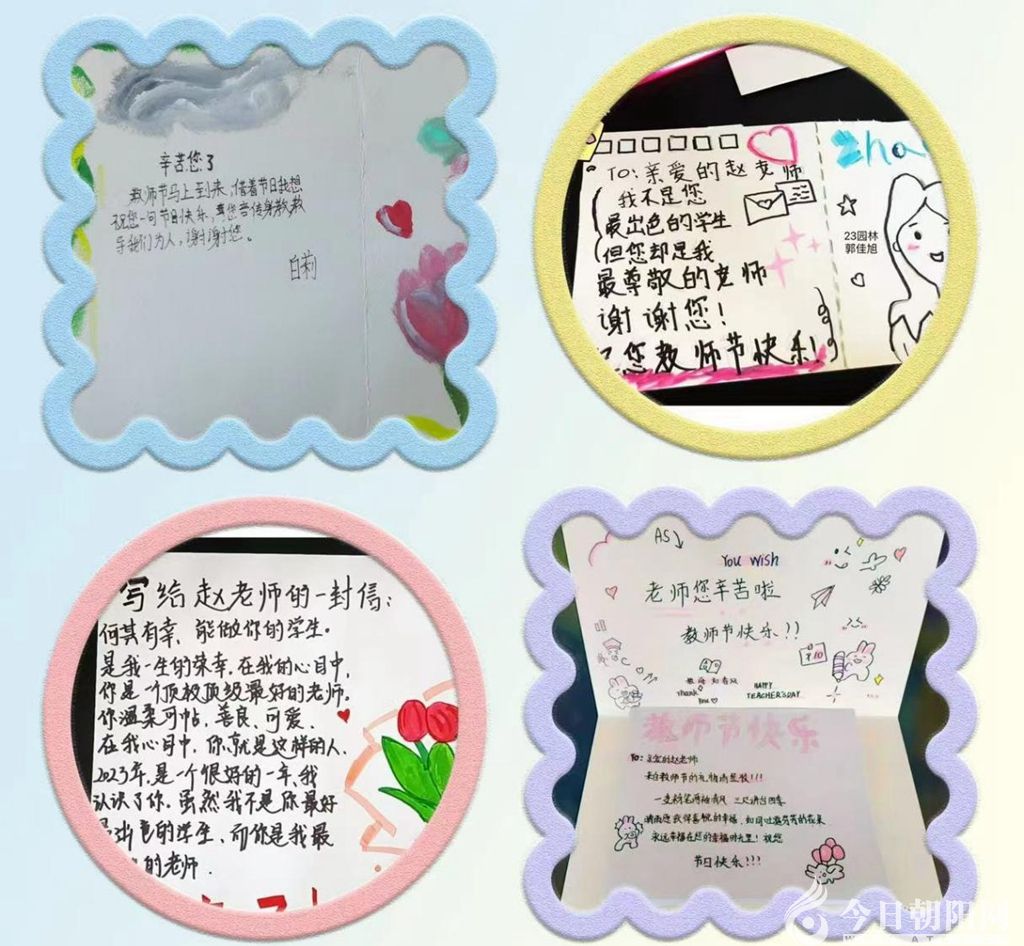 辛苦您了
教师节马上到来,借着节日我想
祝您一句节日快乐,
导我们为人,谢谢您。
白莉
TO:亲爱的赵老师
我不是您
最出色的学生
但您却是我
最尊敬的老师
谢谢您!
您教师节快乐!
zha
23园林
郭佳旭
写给赵老师的一封信:
何其有幸,能做你的学生。
是我一生的荣幸.在我的心目中,
你是一个顶级顶级最好的老师。
你温柔可帖,善良、可爱、
在我心目中,你就是这样的人、
2023年,是一个很好的一年,我
认识了你.虽然我不是你最好
最出色的学生、而你是我最
的老师.
AS
You wish
老师您辛苦啦
教师节快乐!!
Thank
You
HAPPY
TEACHER'S DAY
教师节快乐
To:亲爱的赵老师
来自教师节的礼物请签收!!!
一支粉笔两袖清风 三尺讲台四季
永远幸福在您的幸福时光里!祝您
节日快乐!!!
今日朝阳网